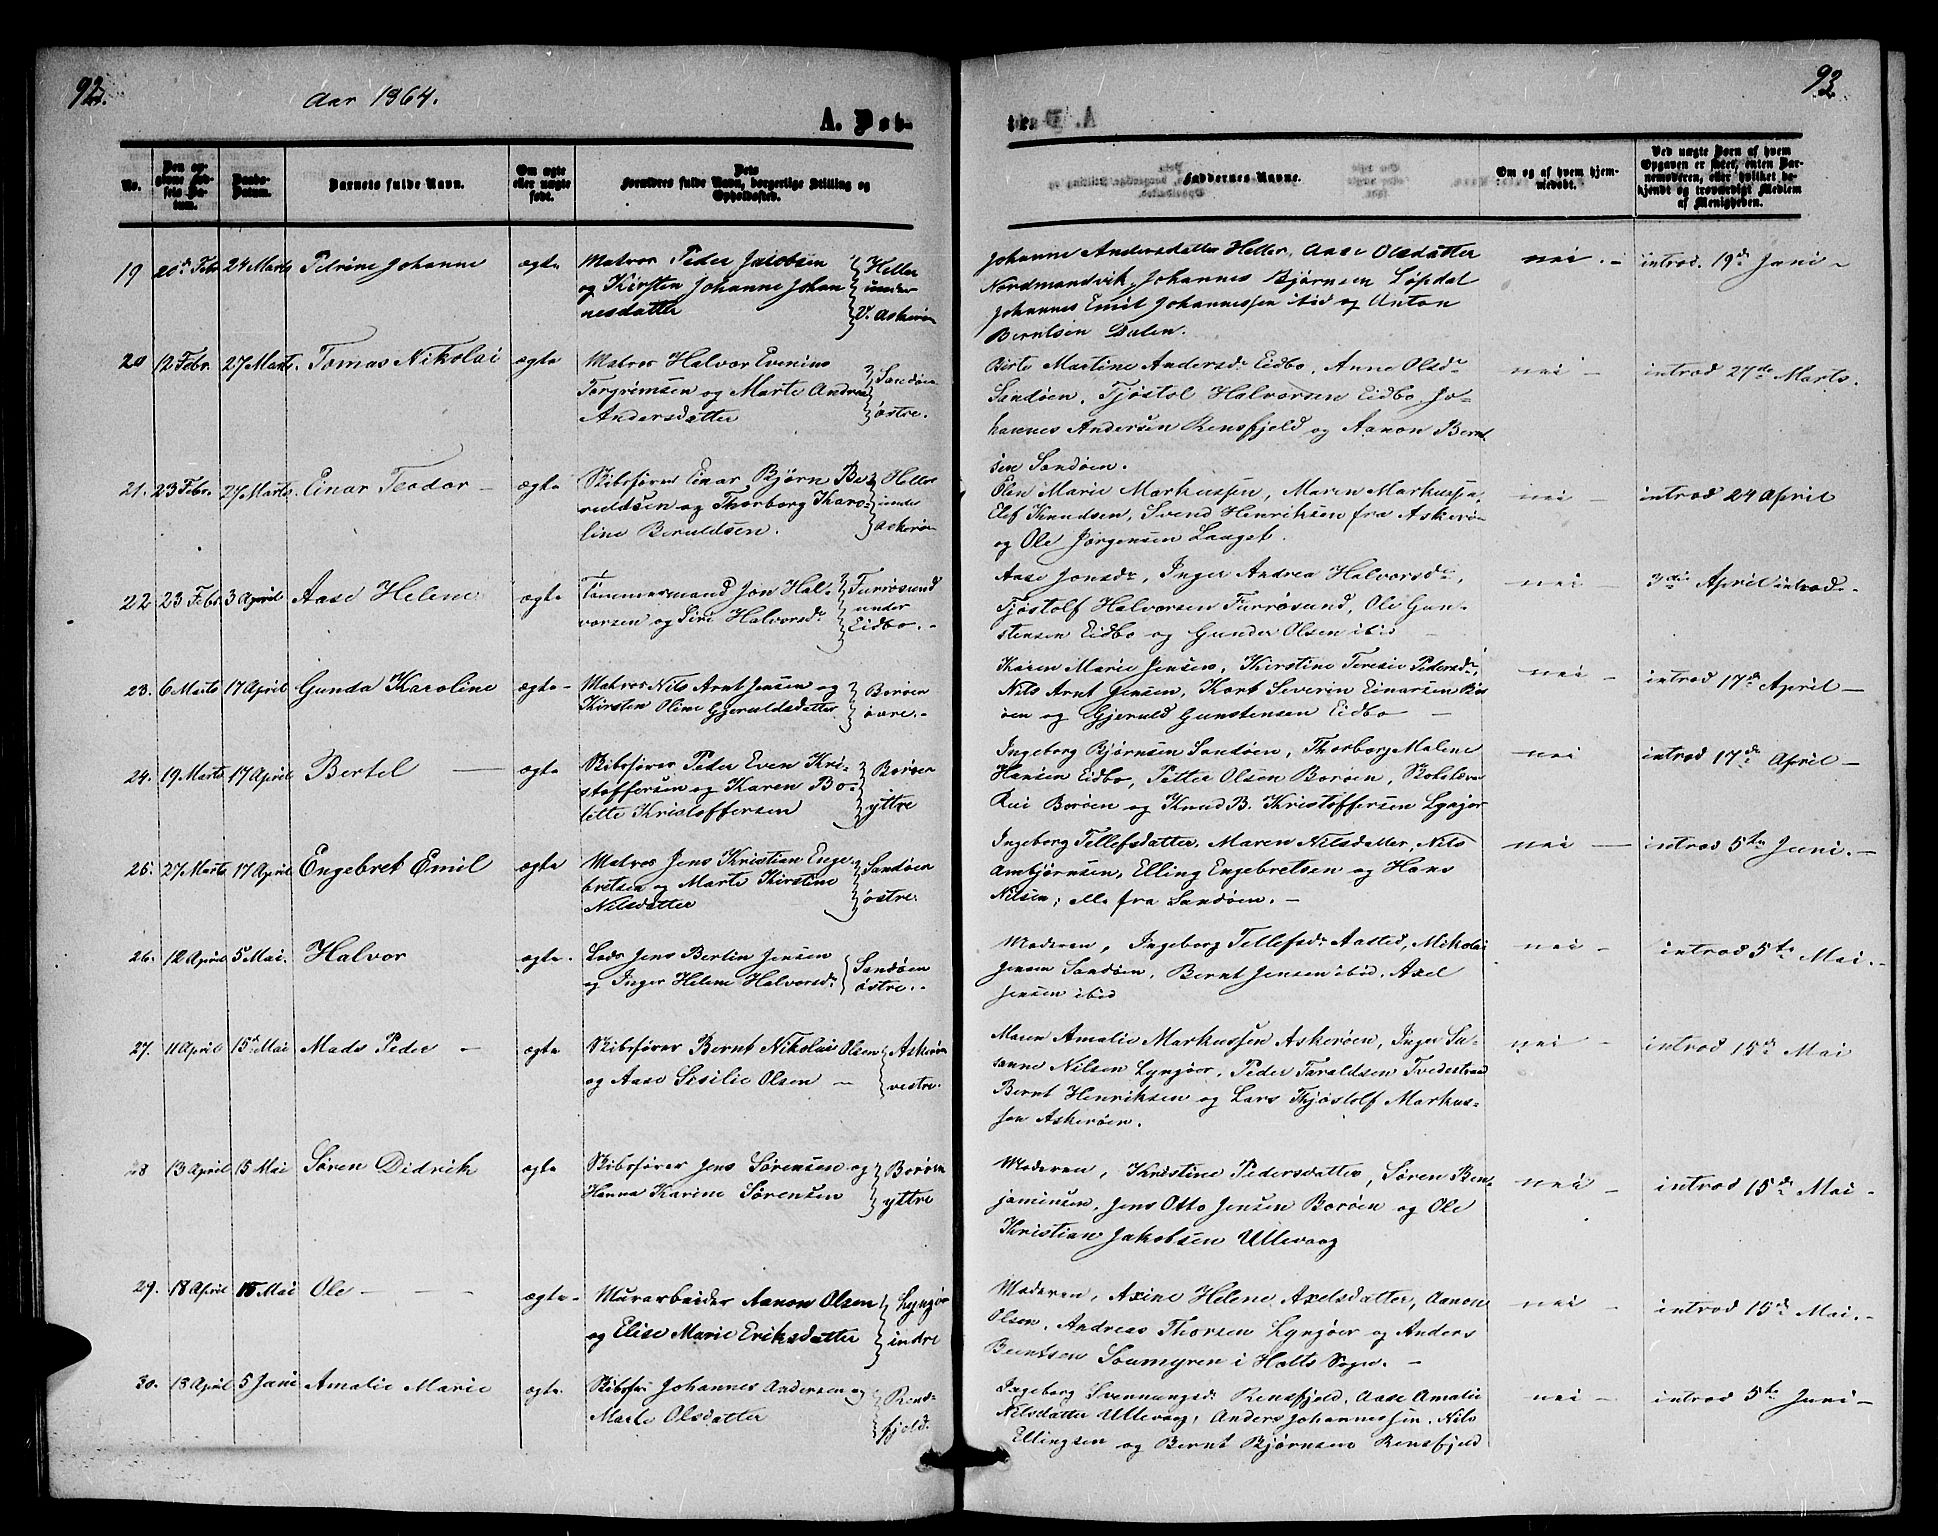 92.
Aar 1864.
A. Døb-
te.
93
No.
Den op-
givne Fød-
sels Da-
tum.
Daabs-
Datum.
Barnets fulde Navn.
Om ægte
eller uægte
født.
Dets
Forældres fulde Navn, borgerlige Stilling og
Opholdssted.
Faddernes Navne.
Om og af hvem hjem-
medøbt.
Ved uægte Børn af hvem
Opgaven er skeet, enten Bar-
nemoderen, eller hvilket be-
kjendt og troværdigt Medlem
af Menigheden.
19 20de Febr 24 Marts Petrine Johanne ægte
Matros Peder Jacobsen
og Kirsten Johanne Johan
nesdatter
Heller
under
V. Askerøn
Johanne Andersdatter Heller, Aase Olsdatter
Nordmandvik, Johannes Bjørnsen Løpdal
Johannes Emil Johannessen ibid og Anton
Berntsen Dalen.
nei. - introd. 19de Juni -
20 12 Febr. 27 Marts. Tomas Nikolai ægte
Matros Halvor Evenius
Torgrimsen og Marte Andrea
Andersdatter
Sandøen
østre.
Birte Martine Andersdr Eidbo, Anne Olsdr
Sandøen, Tjøstol Halvorsen Eidbo, Jo-
hannes Andersen Rensfjeld og Aanon Bernt
sen Sandøen.
nei - introd 27de Marts.
21. 23 Febr. 27 Marts. Einar Teodor - ægte
Skibsfører Einar Bjørn Be
ruldsen og Thorborg Karo-
line Beruldsen.
Heller
unde
Askerøn
Elen Marie Markussen, Maren Markussen,
Elef Knudsen, Svend Henriksen fra Askerøn
og Ole Jørgensen Lauget.
nei - introd 24 April
22 23 Febr 3 April Aase Helene ægte
Tømmermand Jon Hal-
vorsen og Siri Halvorsdr
Furrøsund
under
Eidbo. -
Aase Jonsdr, Inger Andrea Halvorsdr,
Tjøstolf Halvorsen Furrøsund, Ole Gun-
stensen Eidbo og Gunder Olsen ibid -
nei - 3die April introd.
23. 6 Marts 17 April Gunda Karoline ægte -
Matros Nils Arnt Jensen og
Kirsten Oline Gjeruldsdatter
Borøen
øvre. -
Karen Marie Jensen, Kirstine Teresie Pedersdr,
Nils Arnt Jensen, Kort Severin Einarsen Bor
øen og Gjeruld Gunstensen Eidbo -
nei - introd 17de April -
24. 19 Marts 17 April Bertel - ægte
Skibsfører Peder Even Kri-
stoffersen og Karen Bo-
lette Kristoffersen
Borøen
yttre
Ingeborg Bjørnsen Sandøen, Thorborg Malene
Hansen Eidbo, Petter Olsen Borøen, Skolelærer
Borøen og Knud B. Kristoffersen Lyngør
nei introd 17de April -
25. 27 Marts 17 April Engebret Emil ægte
Matros Jens Kristian Enge
bretsen og Marte Kirstine
Nilsdatter
Sandøen
østre.
Ingeborg Tellefsdatter, Maren Nilsdatter, Nils
Ambjørnsen, Elling Engebretsen og Hans
Nilsen, alle fra Sandøen. -
nei - introd 5te Juni. -
26. 12 April 5 Mai. Halvor ægte.
Lods Jens Bertin Jensen
og Inger Helene Halvorsdr
Sandøen
østre. -
Moderen, Ingeborg Tellefsdr Aasted, Nikolai
Jensen Sandøen, Bernt Jensen ibid, Axel
Jensen ibid
nei - introd 5te Mai. -
27. 11 April 15de Mai Mads Peder - ægte
Skibsfører Bernt Nikolai Olsen
og Aase Sisilie Olsen -
Askerøn
vestre.
Maren Amalie Markussen Askerøen, Inger Su-
sanne Nilsen Lyngøer, Peder Taraldsen Tvedestrand
Bernt Henriksen og Lars Thjøstolf Markus-
sen Askerøen.
nei - introd 15de Mai
28 13 April 15 Mai Søren Didrik ægte
Skibsfører Jens Sørensen og
Hanna Karine Sørensen
Borøen
yttre
Moderen, Kristine Pedersdatter, Søren Ben-
jaminsen, Jens Otto Jensen Borøen og Ole
Kristian Jakobsen Ullevaag
nei - introd 15de Mai -
29. 18 April 15 Mai Ole - - - ægte -
Murarbeider Aanon Olsen
og Elise Marie Eriksdatter
Lyngør
indre
Moderen, Axine Helene Axelsdatter, Aanon
Olsen, Andreas Thorsen Lyngøer og Anders
Berntsen Soumyren i Holts Sogn. -
nei - introd 15de Mai. -
30. 18 April 5 Juni Amalie Marie ægte.
Skibsf: Johannes Andersen og
Marte Olsdatter
Rens-
fjeld.
Ingeborg Svennungsdr Rensfjeld, Aase Amalie
Nilsdatter Ullevaag, Anders Johannessen, Nils
Ellingsen og Bernt Bjørnsen Rensfjeld
nei - introd 5te Juni -